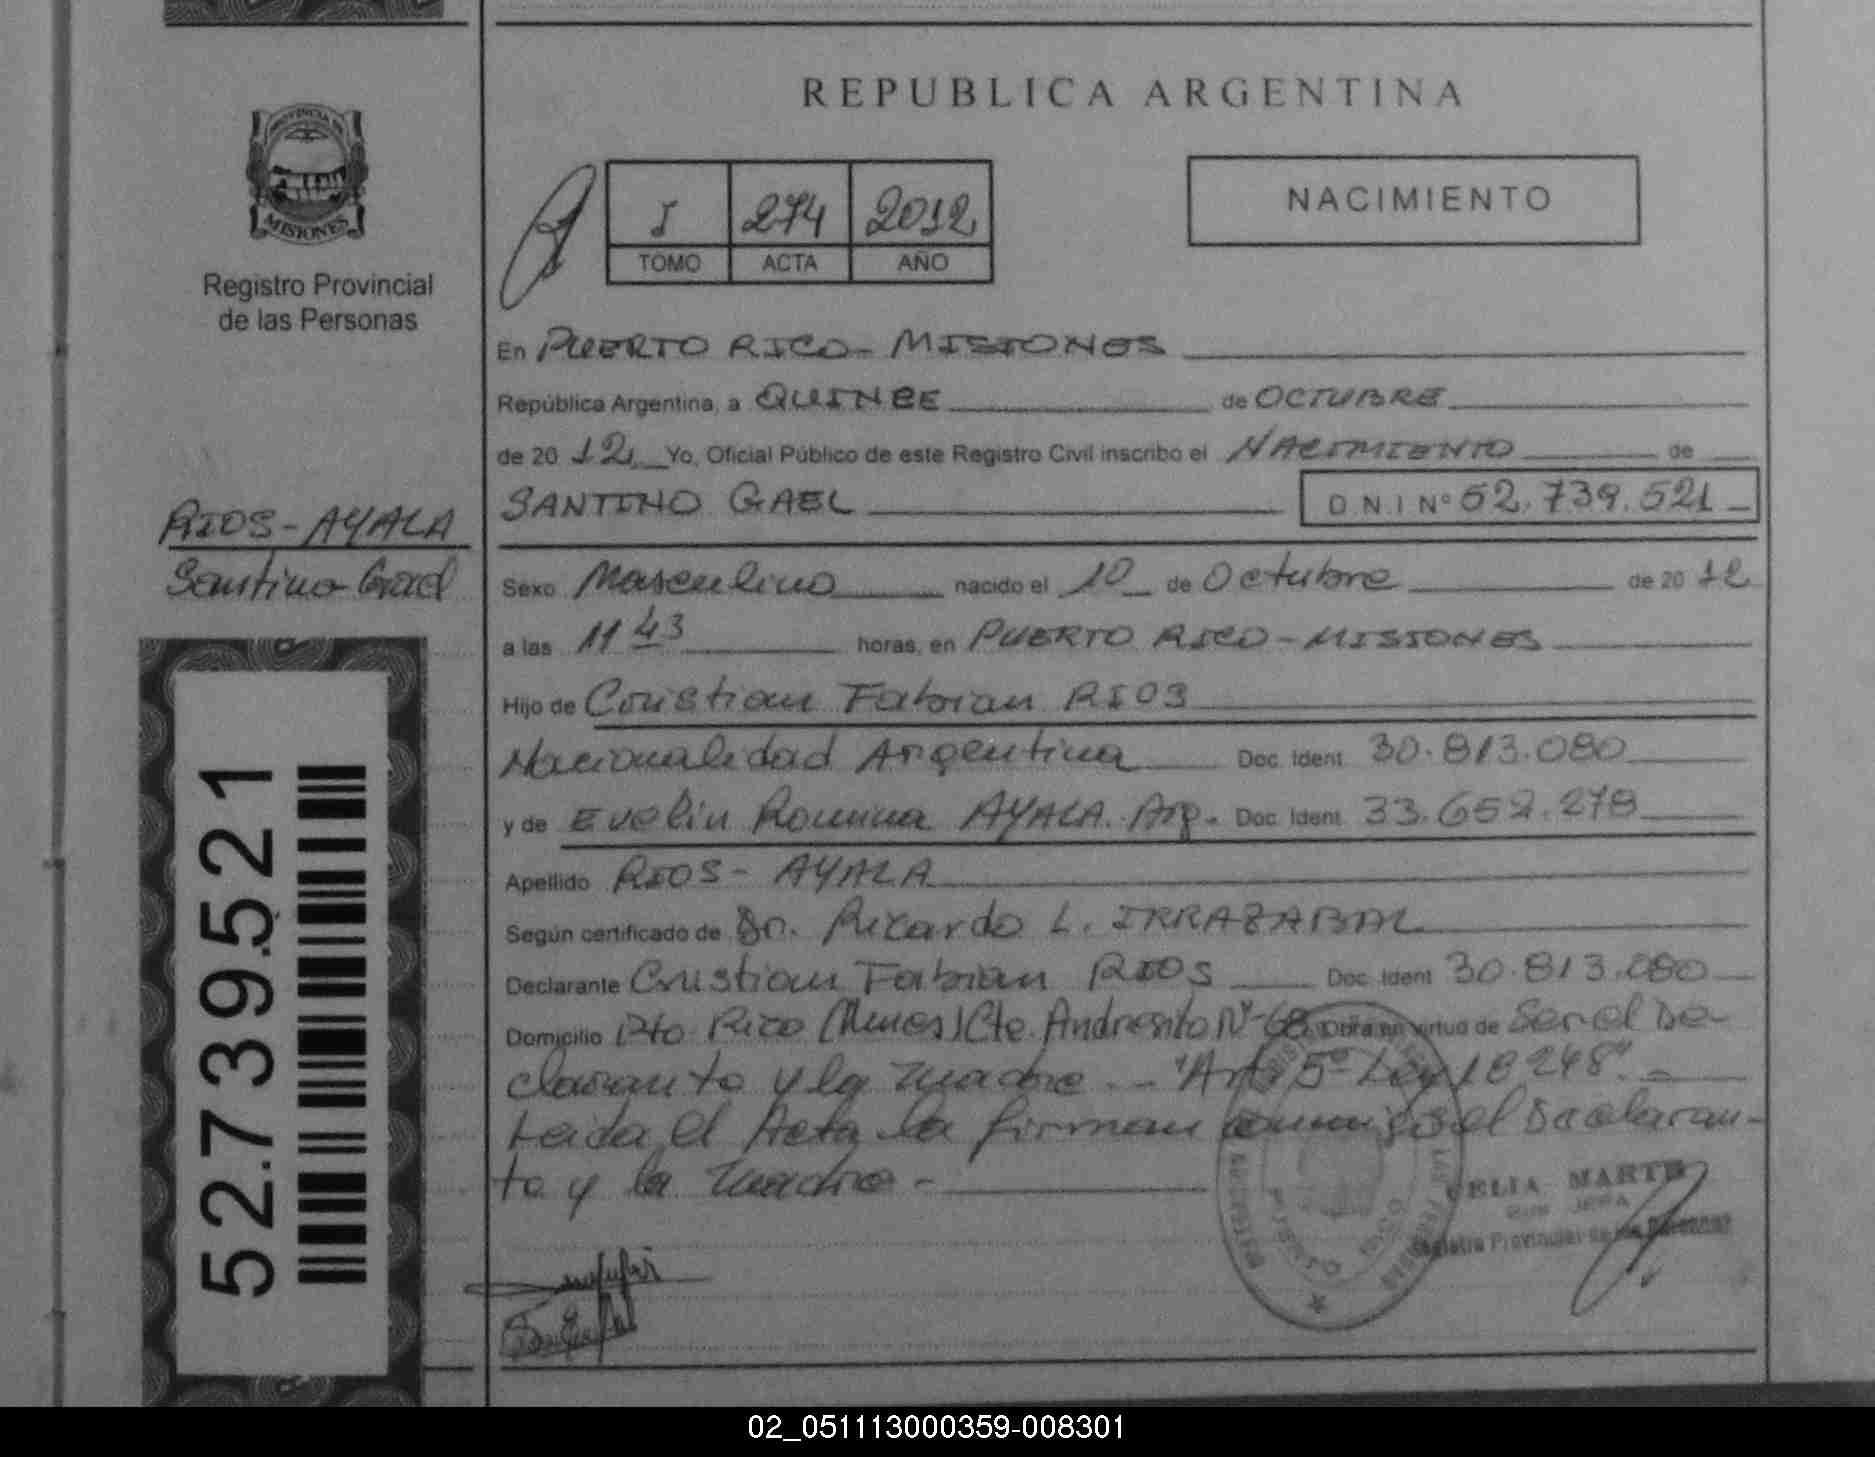 REPUBLICA ARGENTINA
PROVINCIA DE
MISIONES
Registro Provincial
de las Personas
I 274 2012
TOMO ACTA AÑO
NACIMIENTO
En PUERTO RICO - MISIONES
República Argentina, a QUINCE de OCTUBRE
de 20 12 Yo, Oficial Público de este Registro Civil inscribo el NACIMIENTO de
SANTINO GAEL D.N.I Nº 52.739.521
RIOS - AYALA
Santino Gael
Sexo Masculino nacido el 10 de Octubre de 20 12
a las 11 43 horas, en PUERTO RICO - MISIONES
Hijo de Cristian Fabian RIOS
Nacionalidad Argentina Doc. Ident. 30.813.080
y de Evelin Romina AYALA. Arg. Doc. Ident. 33.652.278
Apellido RIOS - AYALA
Según certificado de Dr. Ricardo L. IRRAZABAL
Declarante Cristian Fabian RIOS Doc. Ident 30.813.080
Domicilio Pto Rico (Mnes) Cte. Andresito Nº 68 Obra en virtud de Ser el De-
clarante y la madre - "Art. 5º Ley 18248". -
Leida el Acta la firman conmigo el Declaran-
te y la madre -
CELIA MARTE
Registro Provincial de las Personas
52.739.521
02_051113000359-008301